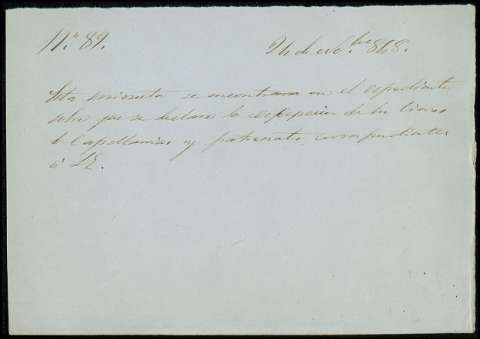 N.º 89.
de 868.
Esta minuta se encontrara en el espediente
sobre que se declare la escepcion de los bienes
de Capellanias y patronatos correspondientes
á SE.